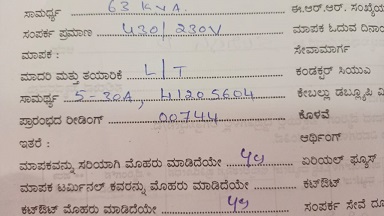 ಸಾಮರ್ಥ್ಯ 63 KVA. ಈ.ಆರ್.ಆರ್. ಸಂಖ್ಯೆ
ಸಂಪರ್ಕ ಪ್ರಮಾಣ 430/230V ಮಾಪಕ ಓದುವ ದಿನಾಂ
ಮಾಪಕ : ಸೇವಾಮಾರ್ಗ
ಮಾದರಿ ಮತ್ತು ತಯಾರಿಕೆ L|T ಕಂಡಕ್ಟರ್ ಸಿಯುಎ
ಸಾಮರ್ಥ್ಯ 5-30A, 41205604 ಕೇಬಲ್ಲು ಡಬ್ಲ್ಯೂಪಿ
ಪ್ರಾರಂಭದ ರೀಡಿಂಗ್ 00744 ಕೊಳವೆ
ಇತರೆ : ಅರ್ಥಿಂಗ್
ಮಾಪಕವನ್ನು ಸರಿಯಾಗಿ ಮೊಹರು ಮಾಡಿದೆಯೇ ಏರಿಯಲ್ ಫ್ಯೂಸ್
ಮಾಪಕ ಟರ್ಮಿನಲ್ ಕವರನ್ನು ಮೊಹರು ಮಾಡಿದೆಯೇ ಕಟ್‌ಔಟ್
ಕಟ್‌ಔಟ್ ಮೊಹರು ಮಾಡಿದೆಯೇ ಸಂಪರ್ಕ ಸೇವೆ ದೂ